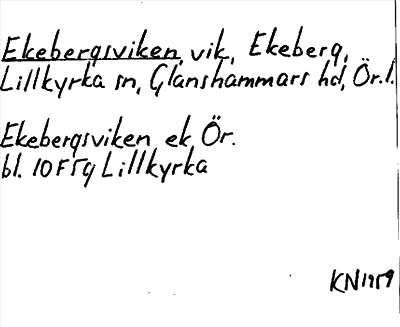 Ekebergsviken, vik, Ekeberg,
Lillkyrka sn, Glanshammars hd, Ör. l.
Ekebergsviken ek. Ör.
bl. 10F5g Lillkyrka
KN 1959